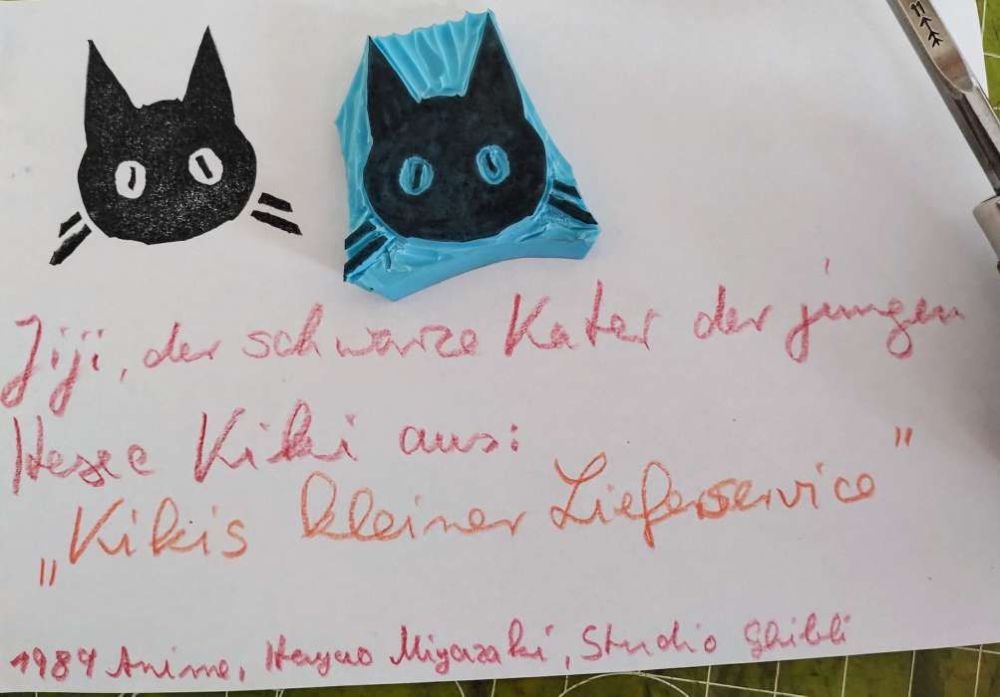 Jiji, der schwarze Kater der jungen
Hexe Kiki aus:
„Kikis kleiner Lieferservice"
1989 Anime, Hayao Miyazaki, Studio Ghibli
11